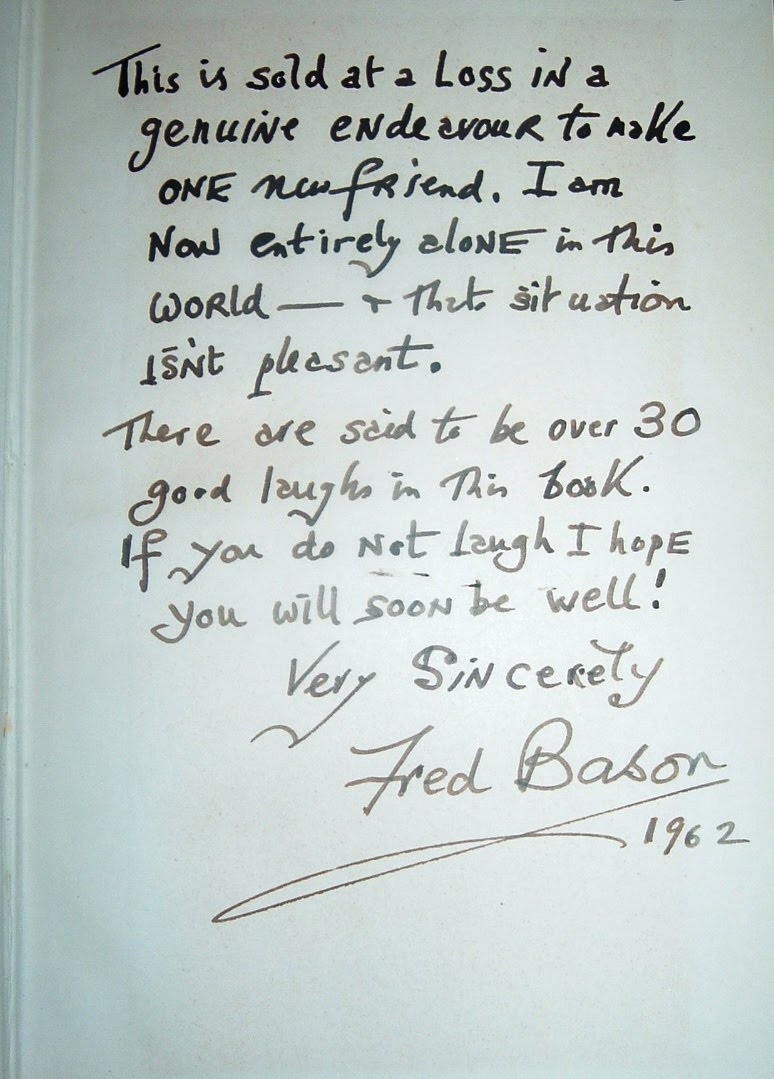 This is sold at a Loss in a
genuine endeavour to make
ONE new friend. I am
Now entirely alone in this
world — & that situation
isn't pleasant.
There are said to be over 30
good laughs in this book.
If you do not laugh I hope
you will soon be well!
Very Sincerely
Fred Bason
1962